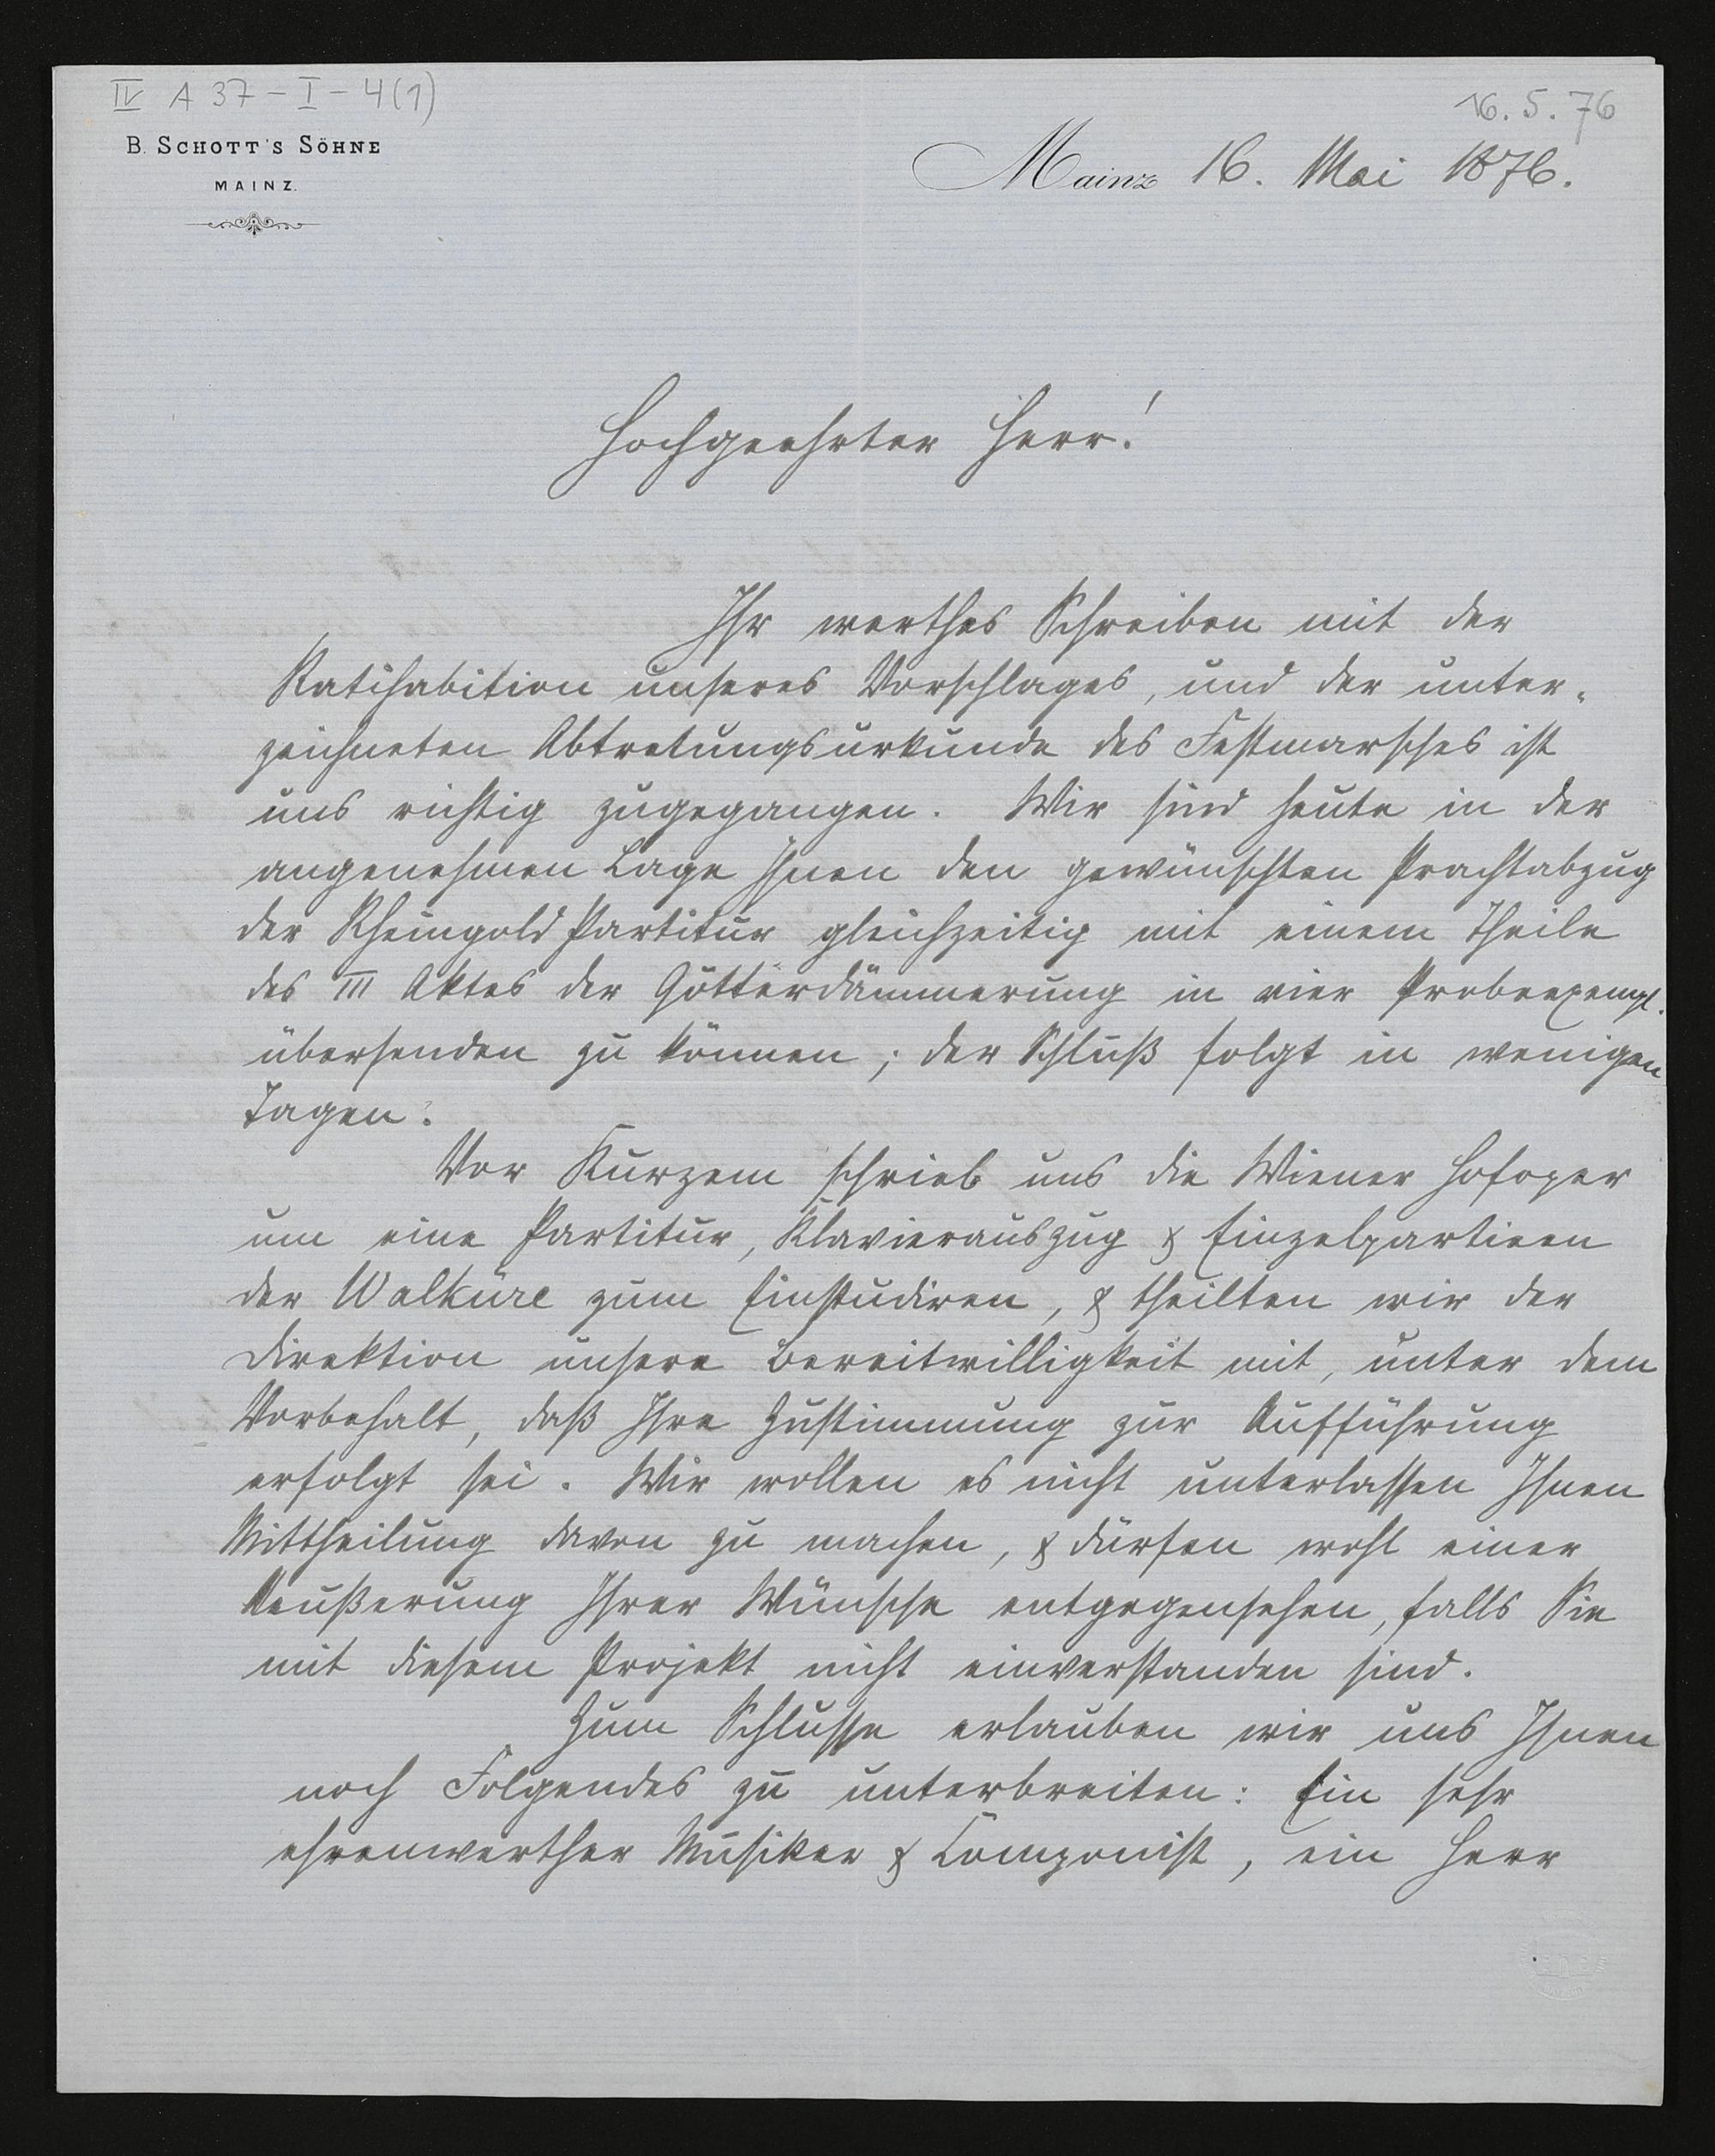 IV A 37-I-4(1)
16.5.76
B. SCHOTT'S SÖHNE
MAINZ.
Mainz 16. Mai 1876.
Hochgeehrter Herr!
Ihr werthes Schreiben mit der
Ratihabition unseres Vorschlages, und der unter-
zeichneten Abtretungsurkunde des Festmarsches ist
uns richtig zugegangen. Wir sind heute in der
angenehmen Lage Ihnen den gewünschten Prachtabzug
der Rheingold Partitur gleichzeitig mit einem Theile
des III Aktes der Götterdämmerung in vier Probeexempl.
übersenden zu können; der Schluß folgt in wenigen
Tagen.
Vor Kurzem schrieb uns die Wiener Hofoper
um eine Partitur, Klavierauszug & Einzelpartieen
der Walküre zum Einstudiren, & theilten wir der
Direktion unsere Bereitwilligkeit mit, unter dem
Vorbehalt, daß Ihre Zustimmung zur Aufführung
erfolgt sei. Wir wollen es nicht unterlassen Ihnen
Mittheilung davon zu machen, & dürfen wohl einer
Aeußerung Ihrer Wünsche entgegensehen, falls Sie
mit diesem Projekt nicht einverstanden sind.
Zum Schlusse erlauben wir uns Ihnen
noch Folgendes zu unterbreiten: Ein sehr
ehrenwerther Musiker & Componist, ein Herr